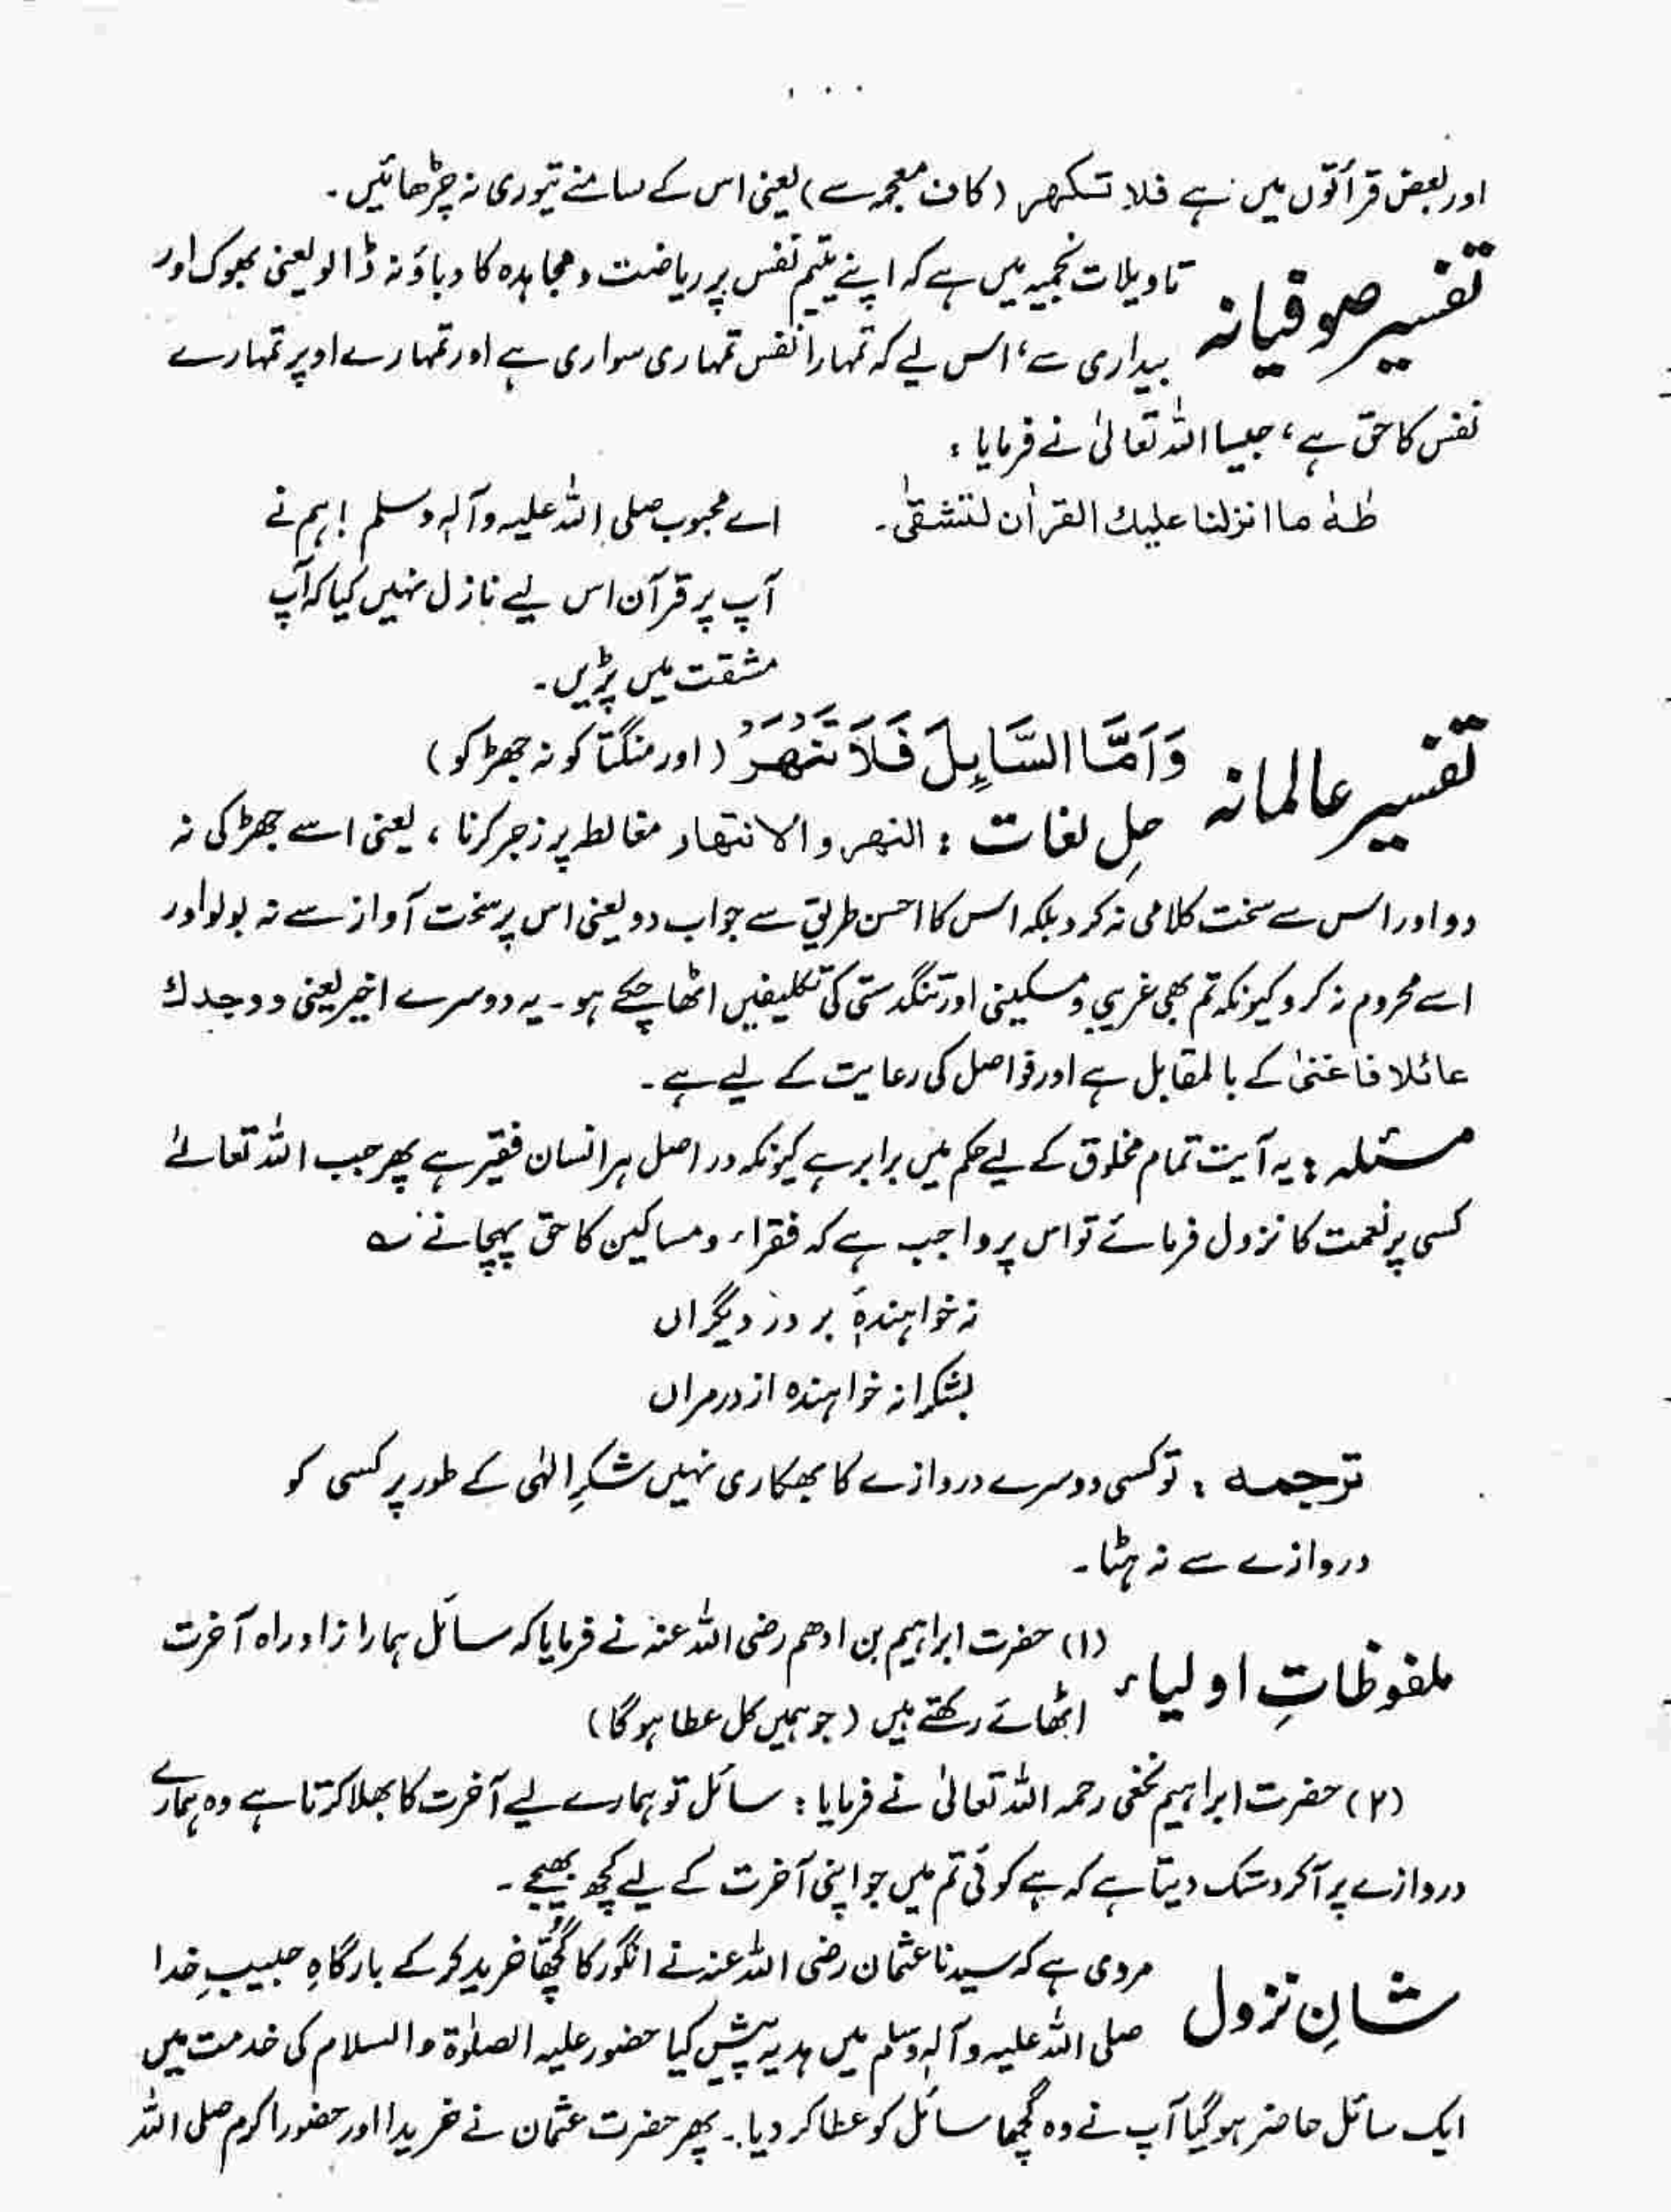 اور بعض قرأتوں میں ہے فلا تکھر (کاف معجمہ سے) یعنی اس کے سامنے تیوری نہ چڑھائیں۔
تفسیر صوفیانہ
تاویلات نجمیہ میں ہے کہ اپنے یتیم نفس پر ریاضت و مجاہدہ کا دباؤ نہ ڈالو یعنی بھوک اور
بیداری سے، اس لیے کہ تمہارا نفس تمہاری سواری ہے اور تمہارے اوپر تمہارے
نفس کا حق ہے، جیسا اللہ تعالیٰ نے فرمایا :
طٰہٰ ما انزلنا علیك القراٰن لتشقیٰ۔
اے محبوب صلی اللہ علیہ وآلہٖ وسلم ! ہم نے
آپ پر قرآن اس لیے نازل نہیں کیا کہ آپ
مشقت میں پڑیں۔
تفسیر عالمانہ
وَاَمَّا السَّآىِٕلَ فَلَا تَنْهَرْ (اور منگتا کو نہ جھڑکو)
حلِ لغات : النھر و الانتھار مغالطہ پر زجر کرنا، یعنی اسے جھڑکی نہ
دو اور اس سے سخت کلامی نہ کرو بلکہ اس کا احسن طریق سے جواب دو یعنی اس پر سخت آواز سے نہ بولو اور
اسے محروم نہ کرو کیونکہ تم بھی غریبی و مسکینی اور تنگدستی کی تکلیفیں اٹھا چکے ہو۔ یہ دوسرے اخیر یعنی ووجدك
عائلا فاغنیٰ کے بالمقابل ہے اور فواصل کی رعایت کے لیے ہے۔
مسئلہ : یہ آیت تمام مخلوق کے لیے حکم میں برابر ہے کیونکہ در اصل ہر انسان فقیر ہے پھر جب اللہ تعالےٰ
کسی پر نعمت کا نزول فرمائے تو اس پر واجب ہے کہ فقراء و مساکین کا حق پہچانے ؎
نہ خواہندۂ بر در دیگراں
بشکرانہ خواہندہ از در مراں
ترجمہ : تو کسی دوسرے دروازے کا بھکاری نہیں شکرِ الٰہی کے طور پر کسی کو
دروازے سے نہ ہٹا۔
ملفوظاتِ اولیاء
(۱) حضرت ابراہیم بن ادھم رضی اللہ عنہ نے فرمایا کہ سائل ہمارا زاد راہ آخرت
اٹھائے رکھتے ہیں (جو ہمیں کل عطا ہوگا)
(۲) حضرت ابراہیم نخعی رحمہ اللہ تعالیٰ نے فرمایا : سائل تو ہمارے لیے آخرت کا بھلا کرتا ہے وہ ہمارے
دروازے پر آکر دستک دیتا ہے کہ ہے کوئی تم میں جو اپنی آخرت کے لیے کچھ بھیجے۔
شانِ نزول
مروی ہے کہ سیدنا عثمان رضی اللہ عنہ نے انگور کا گُچھّا خرید کر کے بارگاہِ حبیبِ خدا
صلی اللہ علیہ وآلہٖ وسلم میں ہدیہ پیش کیا حضور علیہ الصلوٰۃ والسلام کی خدمت میں
ایک سائل حاضر ہوگیا آپ نے وہ گچھا سائل کو عطا کر دیا۔ پھر حضرت عثمان نے خریدا اور حضور اکرم صلی اللہ